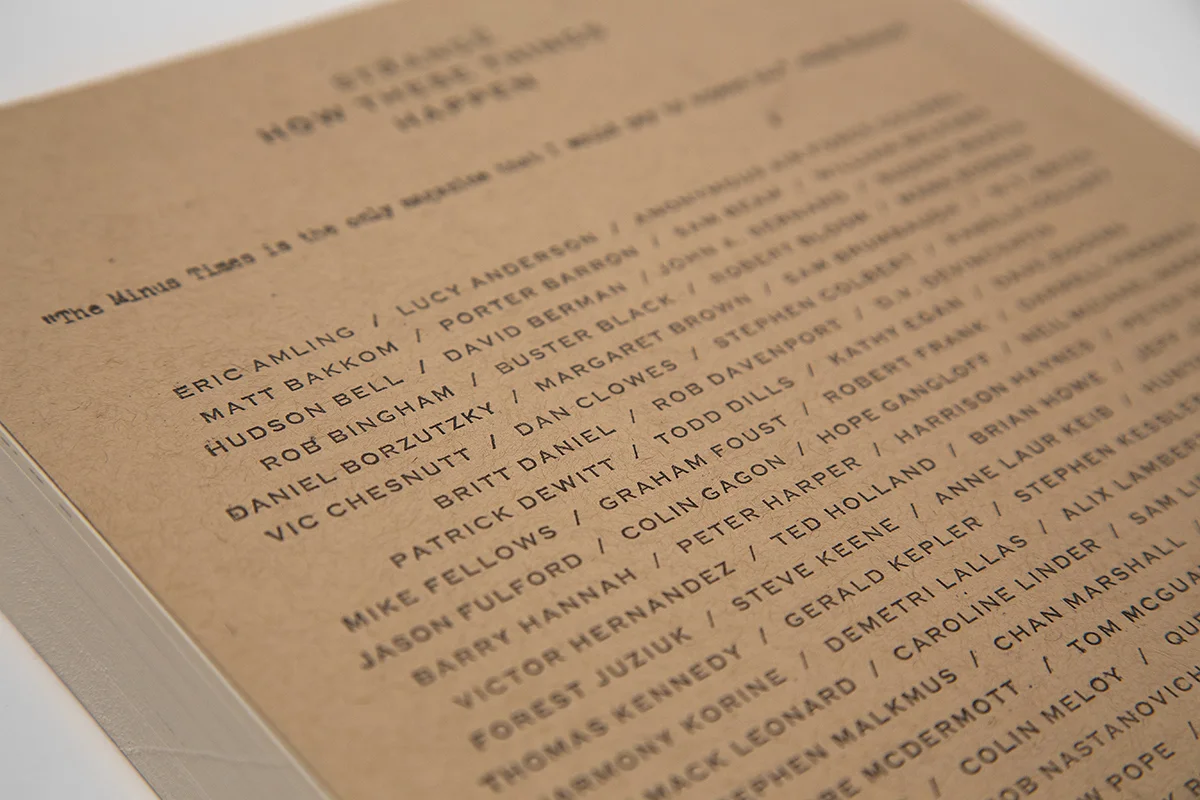 STRANGE
HOW THESE THINGS
HAPPEN
"The Minus Times is the only magazine that I would
ERIC AMLING / LUCY ANDERSON / ANONYMOUS AIR FORCE
MATT BAKKOM / PORTER BARRON / SAM BEAM /
HUDSON BELL / DAVID BERMAN / JOHN A. BERNARD /
ROB BINGHAM / BUSTER BLACK / ROBERT BLOOM /
DANIEL BORZUTZKY / MARGARET BROWN / SAM BRUMBAUGH /
VIC CHESNUTT / DAN CLOWES / STEPHEN COLBERT /
BRITT DANIEL / ROB DAVENPORT / D.V. DEVINCENTIS
PATRICK DEWITT / TODD DILLS / KATHY EGAN / DAVE EGGERS
MIKE FELLOWS / GRAHAM FOUST / ROBERT FRANK /
JASON FULFORD / COLIN GAGON / HOPE GANGLOFF / NEIL MICHAEL
BARRY HANNAH / PETER HARPER / HARRISON HAYNES /
VICTOR HERNANDEZ / TED HOLLAND / BRIAN HOWE /
FOREST JUZIUK / STEVE KEENE / ANNE LAUR KEIB /
THOMAS KENNEDY / GERALD KEPLER / STEPHEN KESSLE
ARMONY KORINE / DEMETRI LALLAS / ALIX LAMBER
MACK LEONARD / CAROLINE LINDER / SAM
EPHEN MALKMUS / CHAN MARSHALL
RE MCDERMOTT / TOM MCGUA
/ COLIN MELOY / QU
OB NASTANOVICH
W POPE /